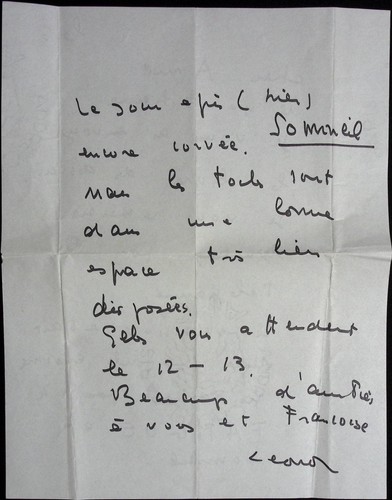 Le jour après (hier)
Sommeil
encore corvée.
Mais les toiles sont
dans une bonne
espace très bien
disposées.
Elles vous attendent
le 12 - 13.
Beaucoup d'amitiés
à vous et Françoise
Leonor